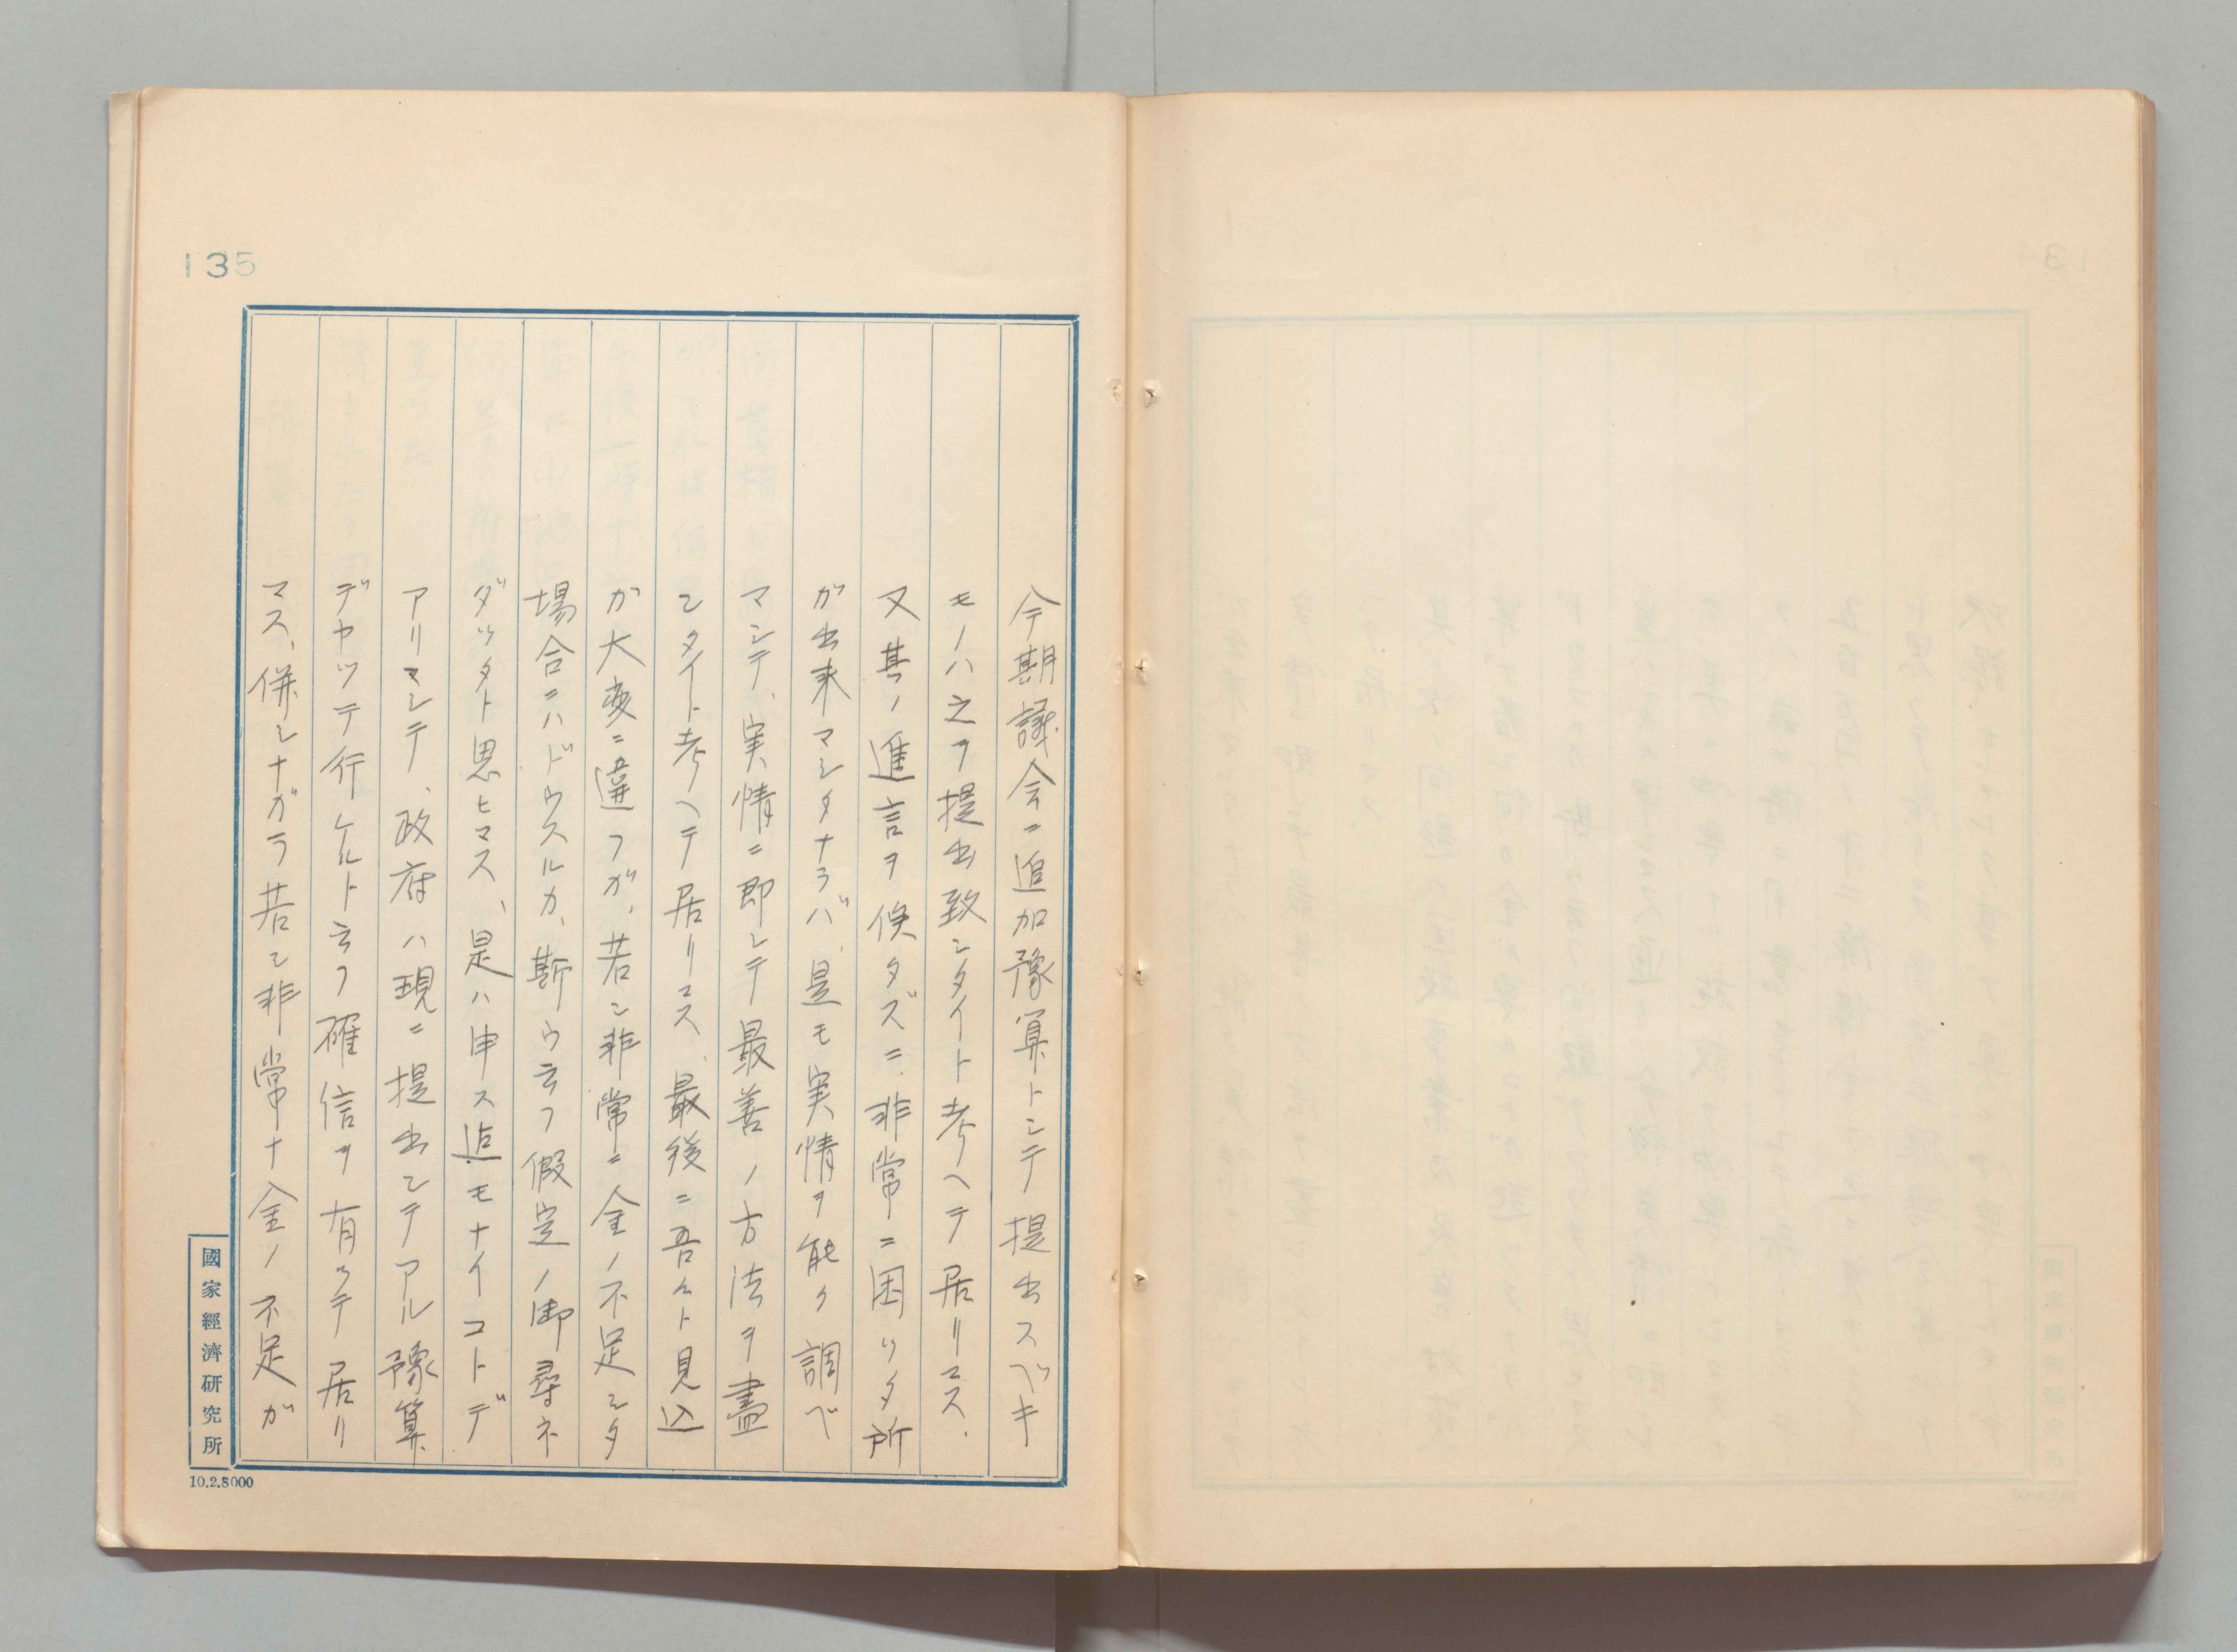 135
今期議会ニ追加豫算トシテ提出スベキ
モノハ之ヲ提出致シタイト考ヘテ居リマス、
又其ノ進言ヲ俟タズニ、非常ニ困ツタ所
ガ出来マシタナラバ、是モ実情ヲ能ク調ベ
マシテ、実情ニ即シテ最善ノ方法ヲ盡
シタイト考ヘテ居リマス、最後ニ吾々ト見込
ガ大変ニ違フガ、若シ非常ニ金ノ不足シタ
場合ニハドウスルカ、斯ウ云フ假定ノ御尋ネ
ダツタト思ヒマス、是ハ申ス迄モナイコトデ
アリマシテ、政府ハ現ニ提出シテアル豫算
デヤツテ行ケルト云フ確信ヲ有ツテ居リ
マス、併シナガラ若シ非常ナ金ノ不足ガ
國家經濟研究所
10.2.8000